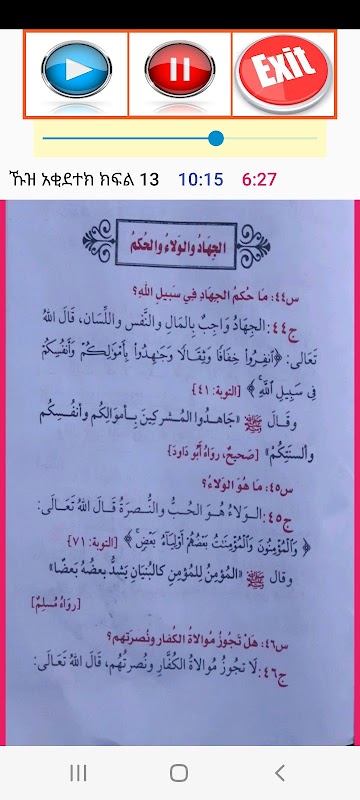 Exit
ኹዝ አቂደተክ ክፍል 13 10:15 6:27
الجِهَادُ والوَلاءُ والحُكمُ
س٤٤: مَا حُكمُ الجِهَادِ فِي سَبِيلِ اللهِ؟
ج٤٤: الجِهَادُ وَاجِبٌ بِالمَالِ والنَّفْسِ واللِّسَانِ، قَالَ اللهُ
تَعَالى: ﴿انفِرُوا خِفَافًا وَثِقَالًا وَجَاهِدُوا بِأَمْوَالِكُمْ وَأَنفُسِكُمْ
فِي سَبِيلِ اللَّهِ﴾ [التوبة: ٤١]
وقَالَ ﷺ «جَاهدُوا المُشركِينَ بِأموَالِكُم وأنفُسِكُم
وألسنَتِكُمْ» [صَحِيحٌ، رواهُ أَبُو دَاودَ]
س٤٥: مَا هُوَ الوَلاءُ؟
ج٤٥: الوَلاءُ هُوَ الحُبُّ والنُّصرَةُ قَالَ اللهُ تَعَالَى:
﴿وَالْمُؤْمِنُونَ وَالْمُؤْمِنَٰتُ بَعْضُهُمْ أَوْلِيَاءُ بَعْضٍ﴾ [التوبة: ٧١]
وقال ﷺ «المُؤمِنُ لِلمُؤمِنِ كالبُنيَانِ يَشدُّ بعضُهُ بَعضًا»
[رواهُ مُسلِمٌ]
س٤٦: هَلْ تَجُوزُ مُوالاةُ الكُفارِ ونُصرَتِهم؟
ج٤٦: لَا تجوزُ مُوالاةُ الكُفَّارِ ونُصرتُهُم، قَالَ اللهُ تَعَالَى: